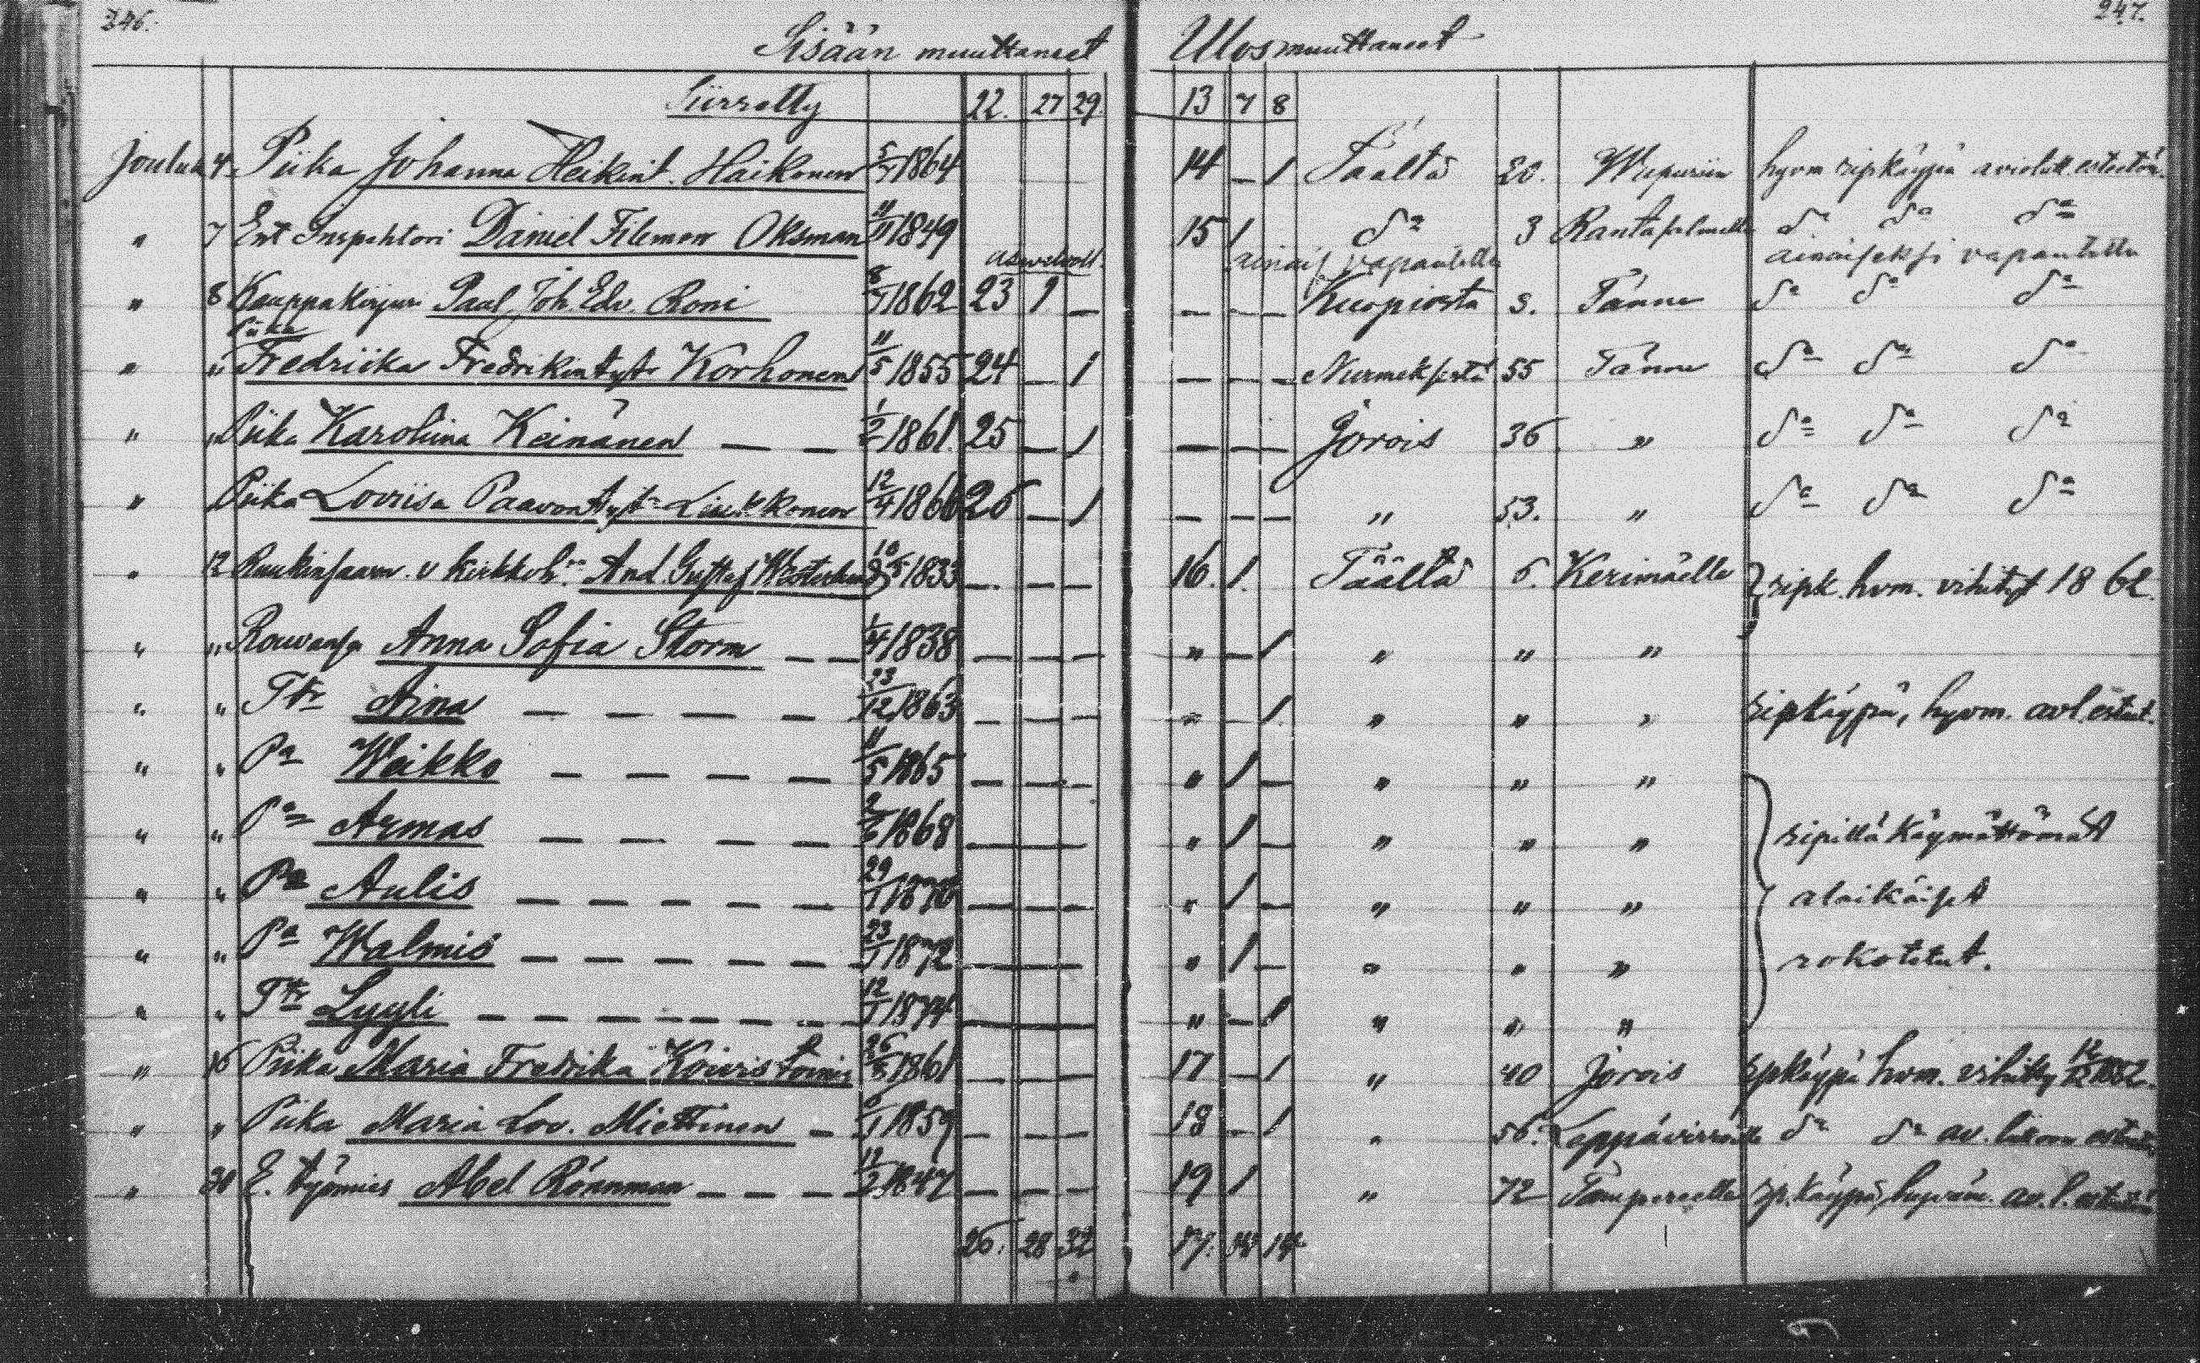 246. 247.
Sisään muuttaneet Ulosmuuttaneet
Siirretty 22. 27 29. 13 7 8
Jouluk 4. Piika Johanna Heikint. Haikonen 5/ 1864 14 — 1 Täältä 20. Wiipuriin hyvm ripkäypä aviolitt. esteetön.
" 7 Ent Inspehtori Daniel Filemon Oksman 11/11 1849 15 1 dº 3 Rantasalmelle dº dº dº
asevelvoll. ainais vapautettu ainaiseksi vapautettu
" 8 Kauppakirjuri Paul Joh. Edv. Roni 8/ 1862 23 1 — — — — Kuopiosta 3. Tänne dº dº dº
Piika
" " Fredriika Fredrikintytr Korhonen 11/5 1855 24 — 1 — — — Nurmeksesta 55 Tänne dº dº dº
" " Piika Karoliina Keinänen — — 1/2 1861. 25 — 1 — — — Jorois 36 " dº dº dº
" " Piika Loviisa Paavontytr 12/4 1866 26 — 1 — — — " 53. " dº dº dº
" 12 v. kirkkoh. And. Gustaf 1833 — — — 16. 1. Täältä 6. Kerimäelle ripk. hvm. vihityt 1862.
" " Rouvansa Anna Sofia Storm — — 1/4 1838 — — — " — 1 " " "
" " Ttr Aina — — — — 23/12 1863 — — — " — 1 " " " ripkäypä, hyvm. avl. esteet.
" " Pa Weikko — — — — 11/5 1865 — — — " 1 — " " "
" " Pa Armas — — — — 2/6 1868 — — — " 1 — " " " ripillä käymättömät
" " Pa Aulis — — — — — 29/1 1870 — — — " 1 — " " " alaikäiset
" " Pa Walmis — — — — — 23/1 1872 — — — " 1 — " " " rokotetut.
" " Ttr Lyyli — — — — — 12/1 1874 — — — " — 1 " " "
" 16 Piika Maria Fredrika Koivistoinen 26/ 1861 — — — 17 — 1 " 40 Jorois ripkäypä hvm. vihitty
" " Piika Maria Lov. Miettinen — 6/1 1859 — — — 18 — 1 " 56. Lappävirroille dº dº av. liittoon esteet.
" 30 E. työmies Abel Rönnman — — — 1847 — — — 19 1 " 72 Tampereelle rp. käypä, hyväm. av. l.
26. 28 32 17. 14